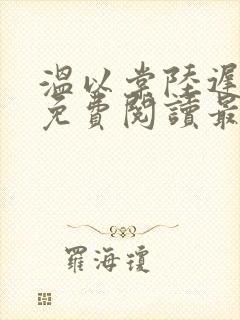 溫以棠陸遲
免費閱讀最
羅海瓊